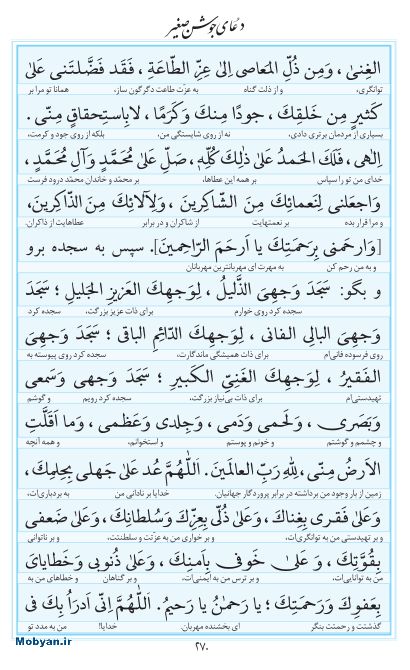 دعای جوشن صغیر
الغِنىٰ، وَمِن ذُلِّ المَعاصى اِلىٰ عِزِّ الطّاعَةِ، فَقَد فَضَّلتَنى عَلىٰ
توانگری، و از ذلت گناه به عزّت طاعت دگرگون ساز، همانا تو مرا بر
كَثيرٍ مِن خَلقِكَ، جودًا مِنكَ وَكَرَمًا، لابِاستِحقاقٍ مِنّى.
بسیاری از مردمان برتری دادی، نه از روی شایستگی من، بلکه از روی جود و کرمت،
اِلٰهى، فَلَكَ الحَمدُ عَلىٰ ذٰلِكَ كُلِّهِ، صَلِّ عَلىٰ مُحَمَّدٍ وَآلِ مُحَمَّدٍ،
خدای من تو را سپاس بر همه این عطاها، بر محمّد و خاندان محمّد درود فرست
وَاجعَلنى لِنَعمائِكَ مِنَ الشّاكِرينَ، وَلِآلائِكَ مِنَ الذّاكِرينَ،
و مرا قرار بده بر نعمتهایت از شاکران و در برابر عطاهایت از ذاکران.
[وَارحَمنى بِرَحمَتِكَ يا اَرحَمَ الرّاحِمينَ]. سپس به سجده برو
و به من رحم کن به مهرت ای مهربانترین مهربانان
و بگو: سَجَدَ وَجهِىَ الذَّليلُ، لِوَجهِكَ العَزيزِ الجَليلِ؛ سَجَدَ
سجده کرد روی خوارم برای ذات عزیز بزرگت، سجده کرد
وَجهِىَ البالِى الفانى، لِوَجهِكَ الدّائِمِ الباقى؛ سَجَدَ وَجهِىَ
روی فرسوده فانی‌ام برای ذات همیشگی ماندگارت، سجده کرد روی پیوسته به
الفَقيرُ، لِوَجهِكَ الغَنِىِّ الكَبيرِ؛ سَجَدَ وَجهى وَسَمعى
تهیدستی‌ام برای ذات بی‌نیاز بزرگت، سجده کرد رویم و گوشم
وَبَصَرى، وَلَحمى وَدَمى، وَجِلدى وَعَظمى، وَما اَقَلَّتِ
و چشمم و گوشتم و خونم و پوستم و استخوانم، و همه آنچه
الاَرضُ مِنّى، لِلّٰهِ رَبِّ العالَمينَ. اَللّٰهُمَّ عُد عَلىٰ جَهلى بِحِلمِكَ،
زمین از بار وجود من برداشته در برابر پروردگار جهانیان. خدایا بر نادانی من به بردباری‌ات،
وَعَلىٰ فَقرى بِغِناكَ، وَعَلىٰ ذُلّى بِعِزِّكَ وَسُلطانِكَ، وَعَلىٰ ضَعفى
و بر تهیدستی من به توانگری‌ات، و بر خواری من به عزتت و سلطنتت، و بر ناتوانی
بِقُوَّتِكَ، وَ عَلىٰ خَوفى بِاَمنِكَ، وَعَلىٰ ذُنوبى وَخَطاياىَ
من به توانایی‌ات، و بر ترس من به ایمنی‌ات، و بر گناهان و خطاهای من به
بِعَفوِكَ وَرَحمَتِكَ؛ يا رَحمٰنُ يا رَحيمُ. اَللّٰهُمَّ اِنّى اَدرَاُ بِكَ فى
گذشتت و رحمتت بنگر ای بخشنده مهربان. خدایا! من به مدد تو
۲۷۰
Mobyan.ir